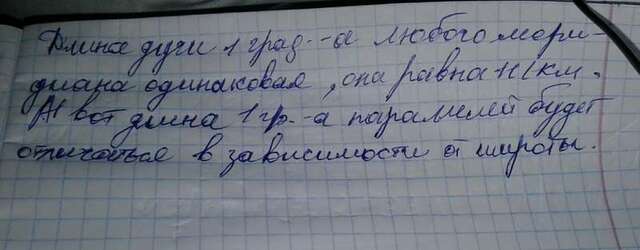 Длина дуги 1 град.-а любого мери-
диана одинаковая, она равна 111 км.
А вот длина 1 гр.-а паралелей будет
отличаться в зависимости от широты.